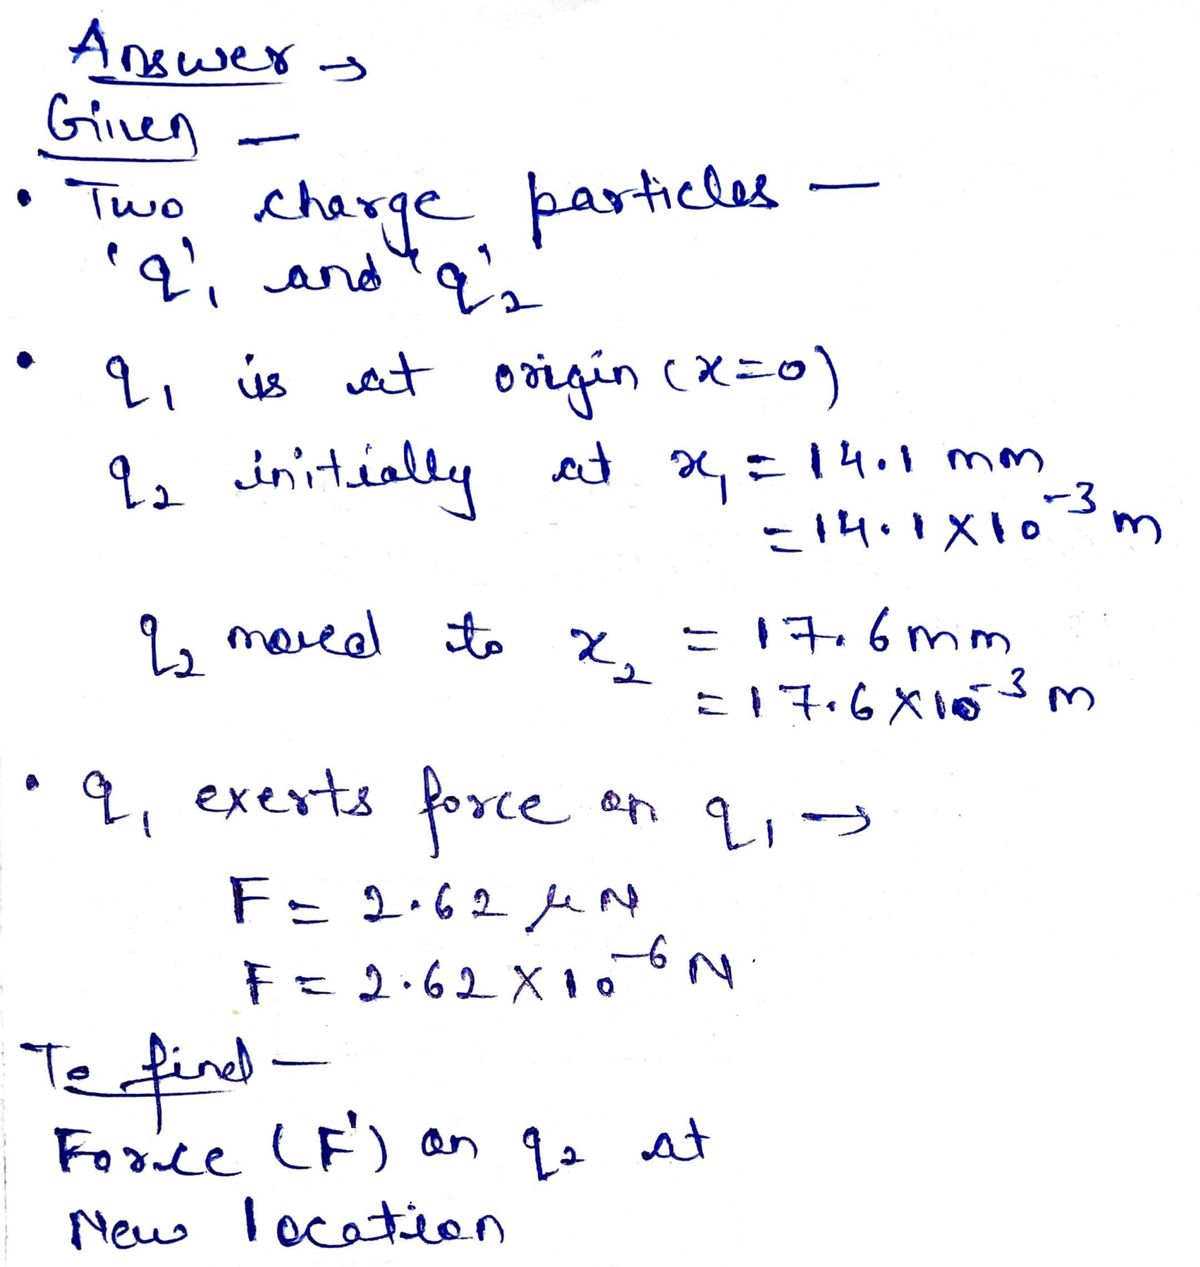 Answer →
Given —
• Two charge particles —
'q'₁ and 'q'₂
• q₁ is at origin (x=0)
q₂ initially at x₁ = 14.1 mm
= 14.1 × 10⁻³ m
q₂ moved to x₂ = 17.6 mm
= 17.6 × 10⁻³ m
• q₁ exerts force on q₁ →
F = 2.62 μN
F = 2.62 × 10⁻⁶ N
To find —
Force (F') on q₂ at
New location